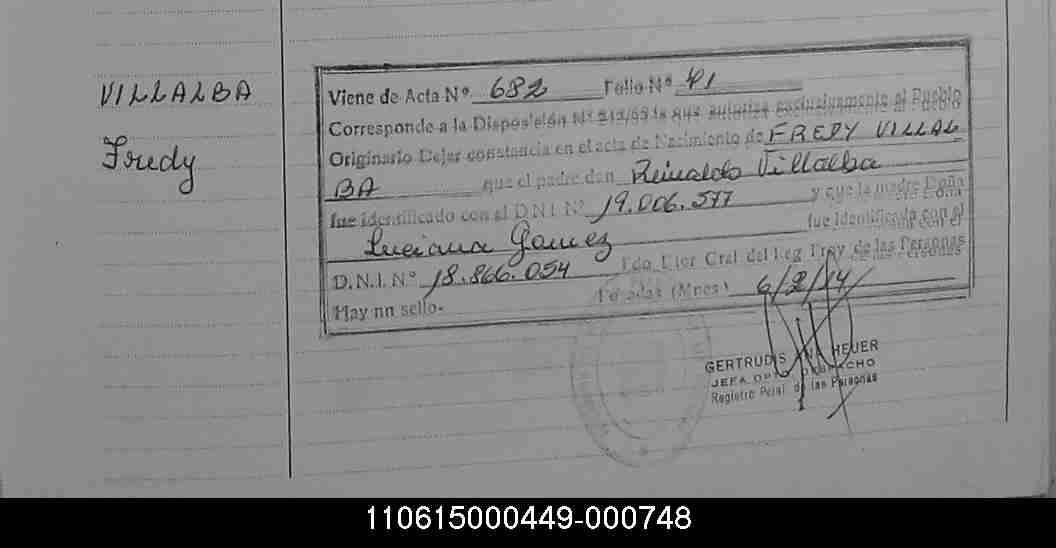 VILLALBA
Fredy
Viene de Acta Nº 682 Folio Nº 41
Corresponde a la Disposición Nº que autoriza exclusivamente al Pueblo
Originario Dejar constancia en el acta de Nacimiento de FREDY VILLAL
BA que el padre don Reinaldo Villalba
fue identificado con el D.N.I. Nº 19.006.577 y que la madre Doña
Luciana Gomez fue identificada con el
D.N.I. Nº 18.866.054 Fdo. Dtor Gral del Reg Prov. de las Personas
Posadas (Mnes) 6/2/14
Hay nn sello-
GERTRUDIS ANA HEUER
JEFA DPTO DESPACHO
Registro Pcial. de las Personas
110615000449-000748